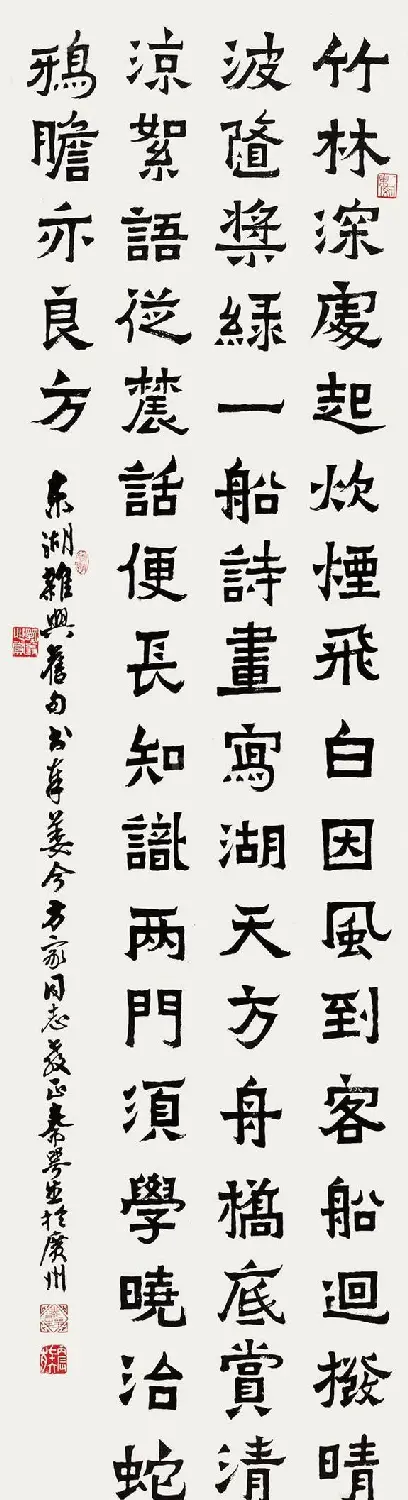 竹林深處起炊煙飛白因風到客船迴撥晴
波隨槳綠一船詩畫寫湖天方舟橋底賞清
涼絮語從農話便長知識两門須學曉治蛇
鴉膽亦良方
東湖雜興舊句書奉姜今方家同志教正秦咢生於廣州